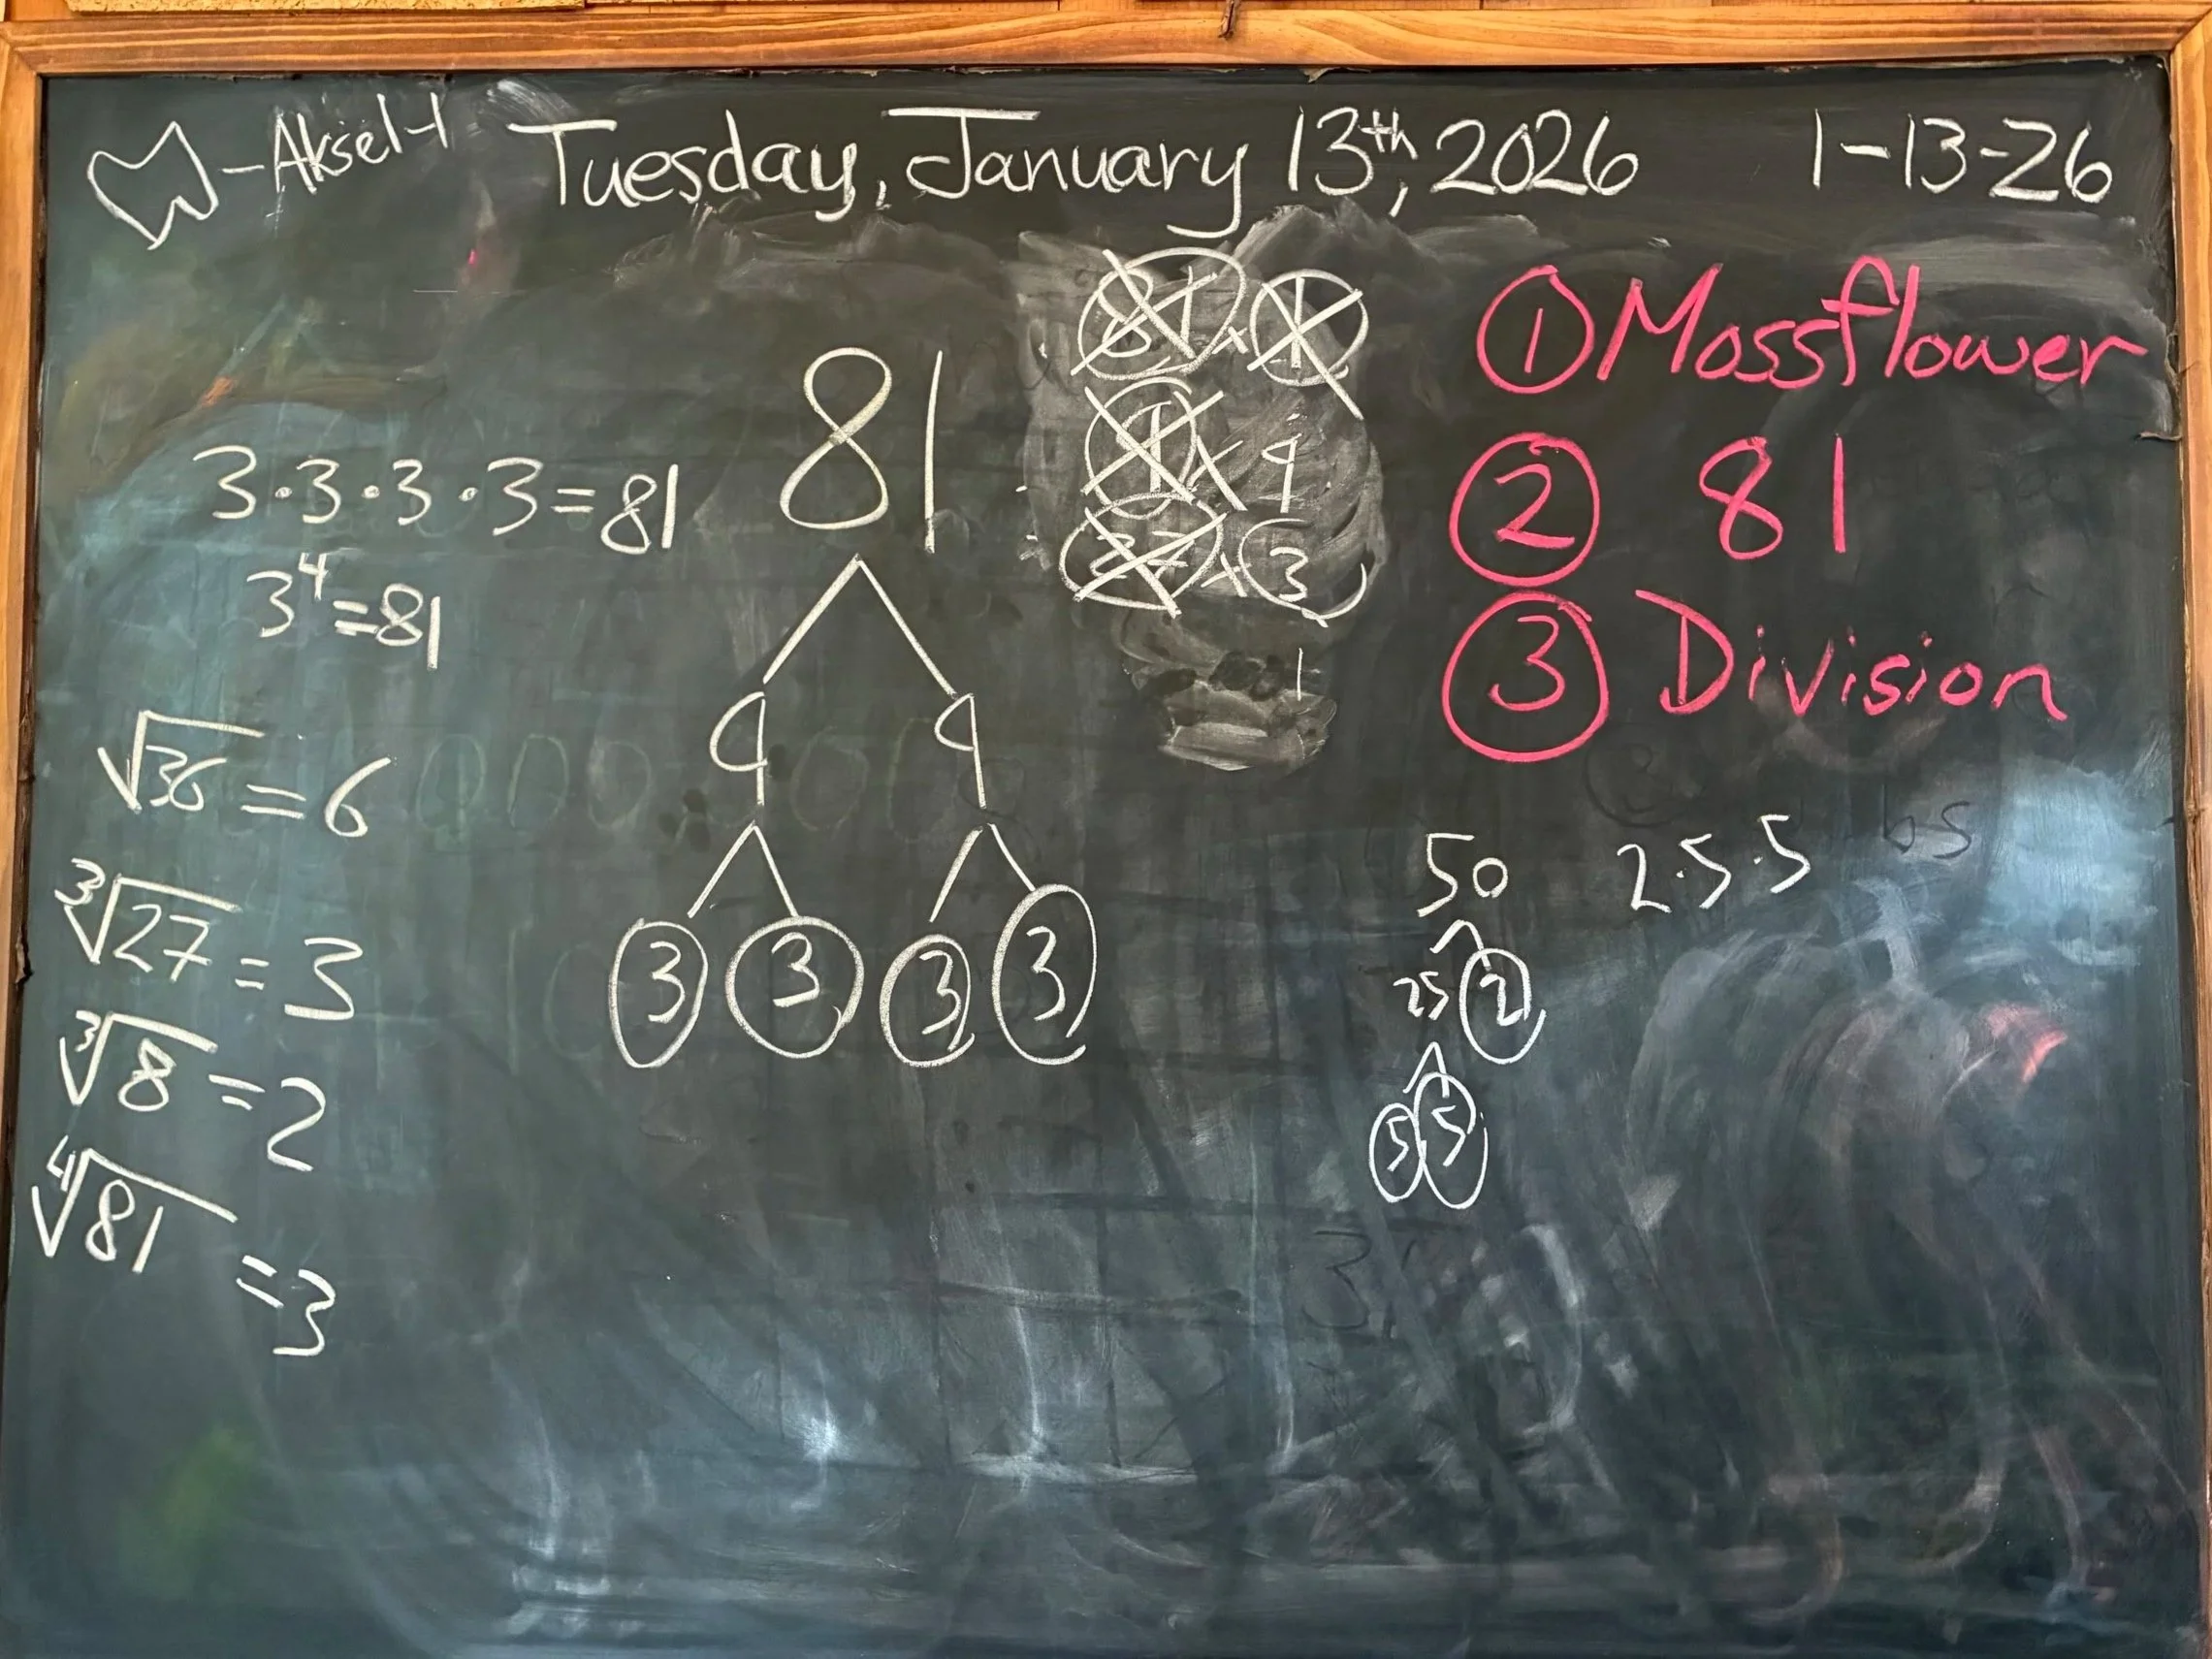 -Aksel-1
Tuesday, January 13th, 2026
1-13-26
3·3·3·3=81
3⁴=81
√36=6
³√27=3
³√8=2
⁴√81=3
81
9 9
3 3 3 3
81×1
9×9
27×3
1
① Mossflower
② 81
③ Division
50
25 2
5 5
2·5·5